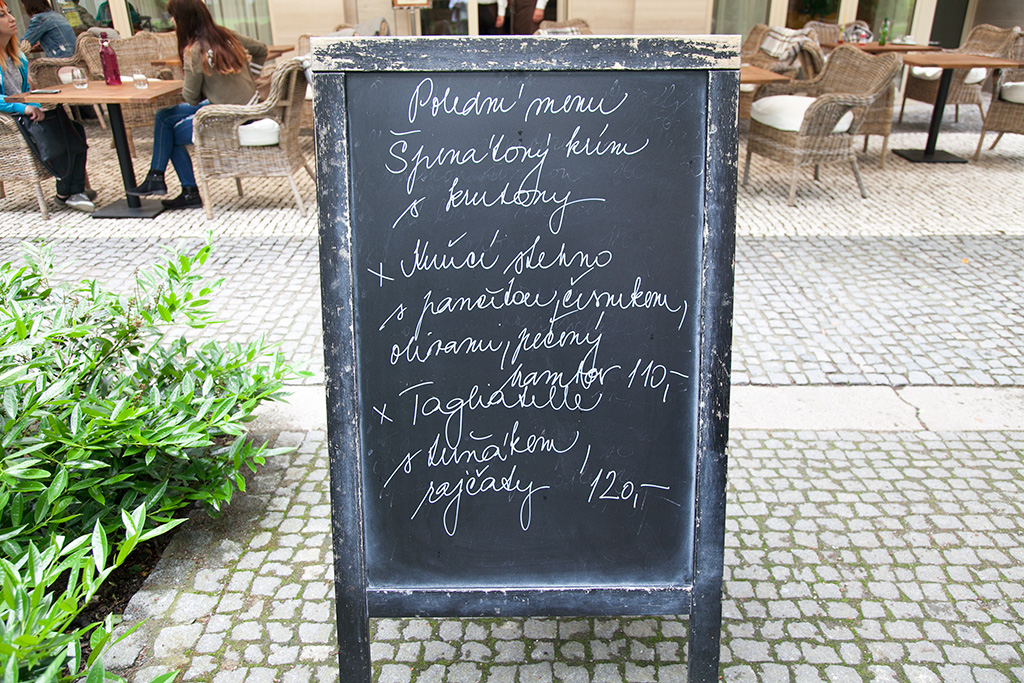 Polední menu
Špenátový krém
s krutony
x Kuřecí stehno
s pancettou, česnekem,
olivami, pečený
brambor 110,-
x Tagliatelle
s tuňákem,
rajčaty 120,-